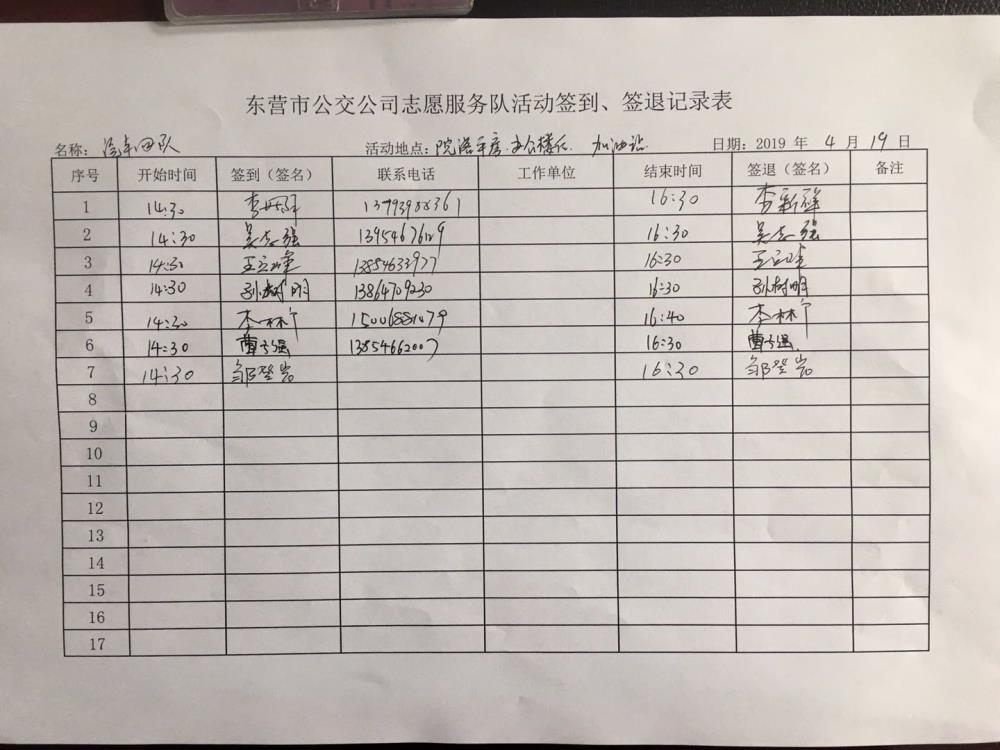 东营市公交公司志愿服务队活动签到、签退记录表
名称： 汽车四队 活动地点： 加油站 日期：2019 年 4 月 19 日
序号 开始时间 签到（签名） 联系电话 工作单位 结束时间 签退（签名） 备注
1 14:30 李新 16:30 李新
2 14:30 吴志强 13954676129 16:30 吴志强
3 14:30 王立 13854633977 16:30 王立
4 14:30 孙树明 13864709230 16:30 孙树明
5 14:30 李林 15006881079 16:40 李林
6 14:30 曹强 13854662007 16:30 曹强
7 14:30 邹登岩 16:30 邹登岩
8
9
10
11
12
13
14
15
16
17